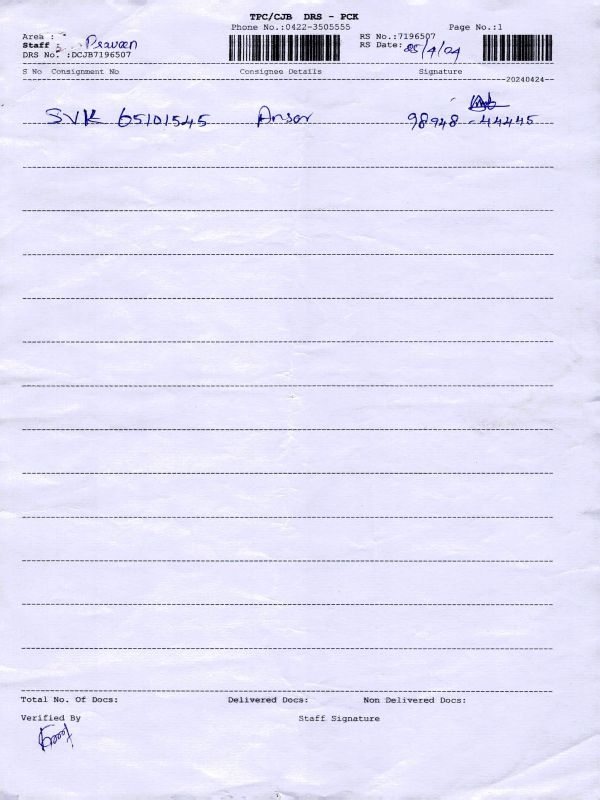 TPC/CJB DRS - PCK
Phone No.:0422-3505555 Page No.:1
Area :
Staff : Praveen
DRS No. :DCJB7196507
RS No.:7196507
RS Date: 25/4/24
S No Consignment No Consignee Details Signature
20240424
SVK 65101545 Ansar 98948-44445
Total No. Of Docs: Delivered Docs: Non Delivered Docs:
Verified By Staff Signature